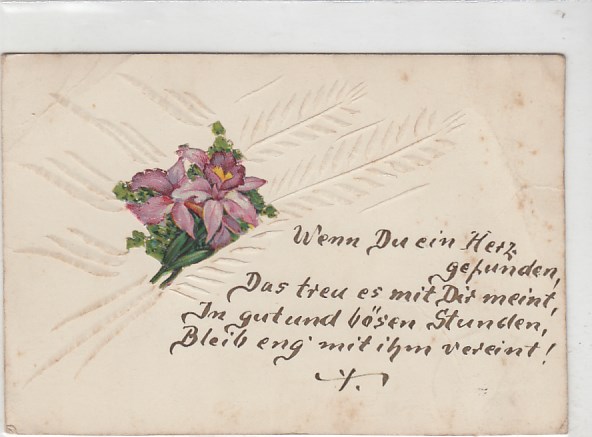 Wenn Du ein Herz
gefunden,
Das treu es mit Dir meint,
In gut und bösen Stunden,
Bleib eng' mit ihm vereint!